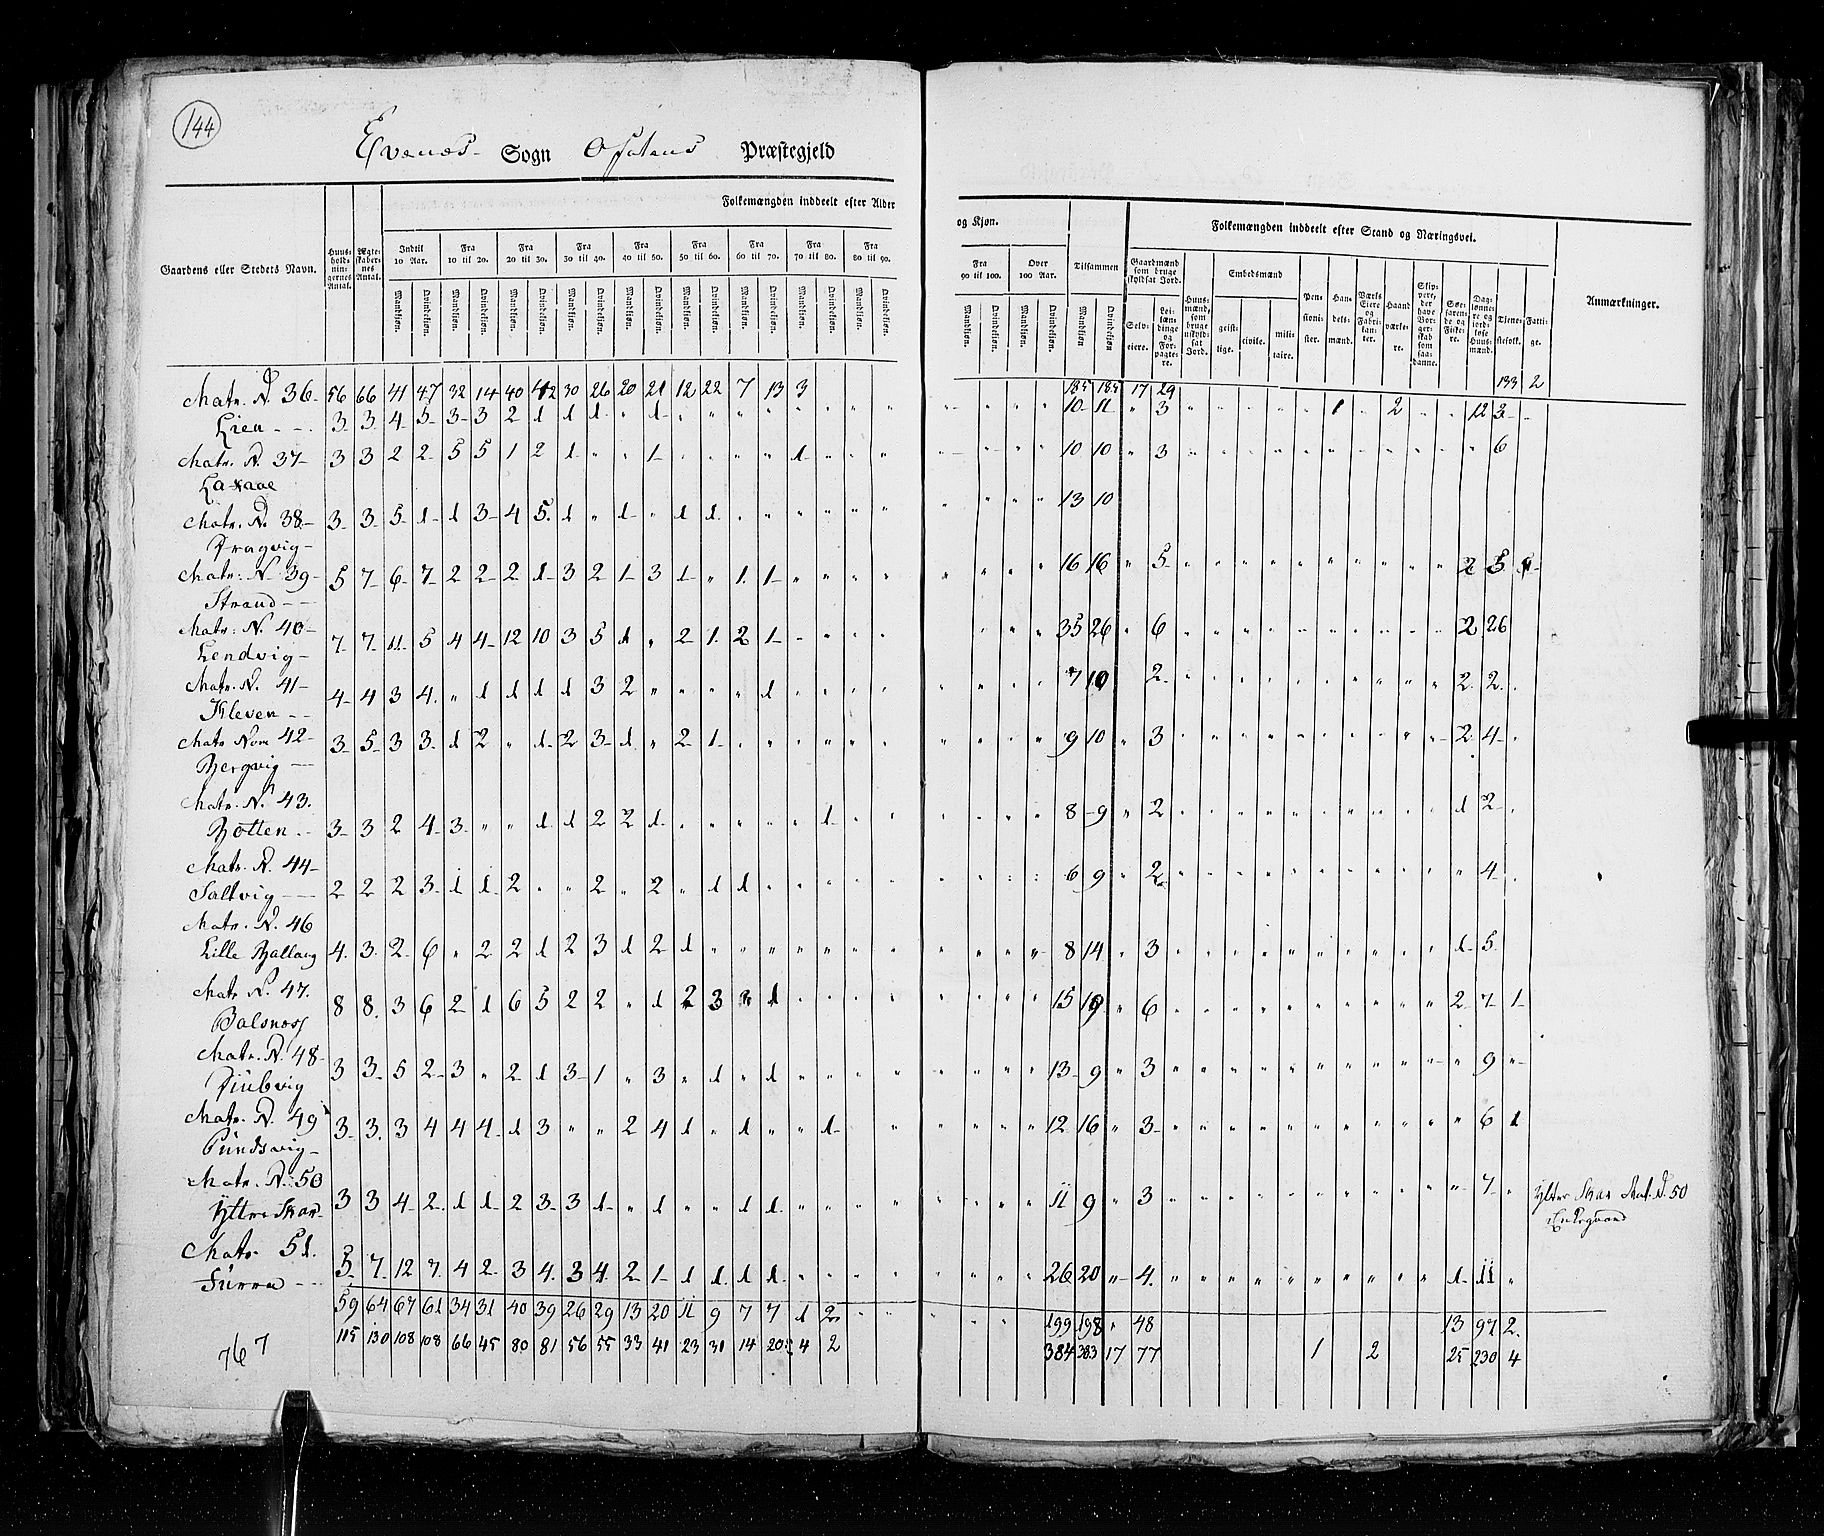 144
Evenæs Sogn Ofotens Præstegjeld
Gaardens eller Stedets Navn.
Huusholdningernes Antal.
Ægteskabernes Antal.
Folkemængden inddeelt efter Alder og Kjøn.
Indtil 10 Aar. Fra 10 til 20. Fra 20 til 30. Fra 30 til 40. Fra 40 til 50. Fra 50 til 60. Fra 60 til 70. Fra 70 til 80. Fra 80 til 90. Fra 90 til 100. Over 100 Aar. Tilsammen
Mandkjøn. Qvindekjøn.
Folkemængden inddeelt efter Stand og Næringsvei.
Gaardmænd som bruge skyldsat Jord.
Selveiere. Leilændinge og Forpagtere.
Huusmænd, som bruge uskyldsat Jord.
Embedsmænd
geistlige. civile. militaire.
Pensionister. Handelsmænd. Værks Eiere og Fabrikanter. Haandværkere.
Skippere, der have Borgerskab som saadanne.
Søefarende og Fiskere.
Daglønnere og jordløse Huusmænd.
Tjenestefolk. Fattige.
Anmærkninger.
56 66 41 47 32 14 40 42 30 26 20 21 12 22 7 13 3 185 185 17 29 133 2
Matr. N. 36-
Lien - - 3 3 4 5 3 3 2 1 1 1 " 1 10 11 " 3 1 2 12 3
Matr. N. 37- 3 3 2 2 5 5 1 2 1 " " 1 " " " " 1 10 10 " 3 6
Matr. N. 38- 3 3 5 1 1 3 4 5 1 " 1 " 1 1 13 10
Matr: N. 39- 5 7 6 7 2 2 2 1 3 2 1 3 1 " 1 1 16 16 " 5 2 5
Strand - -
Matr: N. 40- 7 7 11 5 4 4 12 10 3 5 1 " 2 1 2 1 35 26 " 6 2 26
Lendvig -
Matr. N. 41- 4 4 3 4 " 1 1 1 1 3 2 " " " " 1 7 10 2 2 2
Kleven - -
Matr Nom 42- 3 5 3 3 1 2 " 1 2 3 1 " 2 1 9 10 " 3 2 4
Bergvig - -
Matr. N. 43.
Botten - - 3 3 2 4 3 " " 1 1 2 2 1 " " " " " 1 8 9 " 2 1 2
Matr. N. 44-
Saltvig - - 2 2 2 3 1 1 2 " " 2 " 2 " 1 1 6 9 " 2 4
Matr. N. 46
Lille Ballang 4 3 2 6 " 2 2 1 2 3 1 2 1 8 14 " 3 1 5
Matr N. 47. 8 8 3 6 2 1 6 5 2 2 " 1 2 3 " 1 15 19 " 6 2 7 1
Balsnæss
Matr. N. 48- 3 3 5 2 3 " 2 1 3 1 " 3 " 1 " 1 13 9 " 3 9 "
Matr. N. 49 3 3 3 4 4 4 1 3 " " 2 4 1 " 1 " " 1 12 16 " 3 6 1
Pundsvig -
Matr. N. 50 3 3 4 2 1 1 2 3 3 1 " 1 " " 1 1 11 9 " 3 7 "
Yttre Skar Yttre Skar Mat. N. 50
Enkegaard
Matr. 51. 5 7 12 7 4 2 3 4 3 4 2 1 1 1 1 1 26 20 " 4 1 11 "
Furra - -
59 64 67 61 34 31 40 39 26 29 13 20 11 9 7 7 1 2 199 198 " 48 13 97 2
115 130 108 108 66 45 80 81 56 55 33 41 23 31 14 20 4 2 384 383 17 77 1 2 25 230 4
767